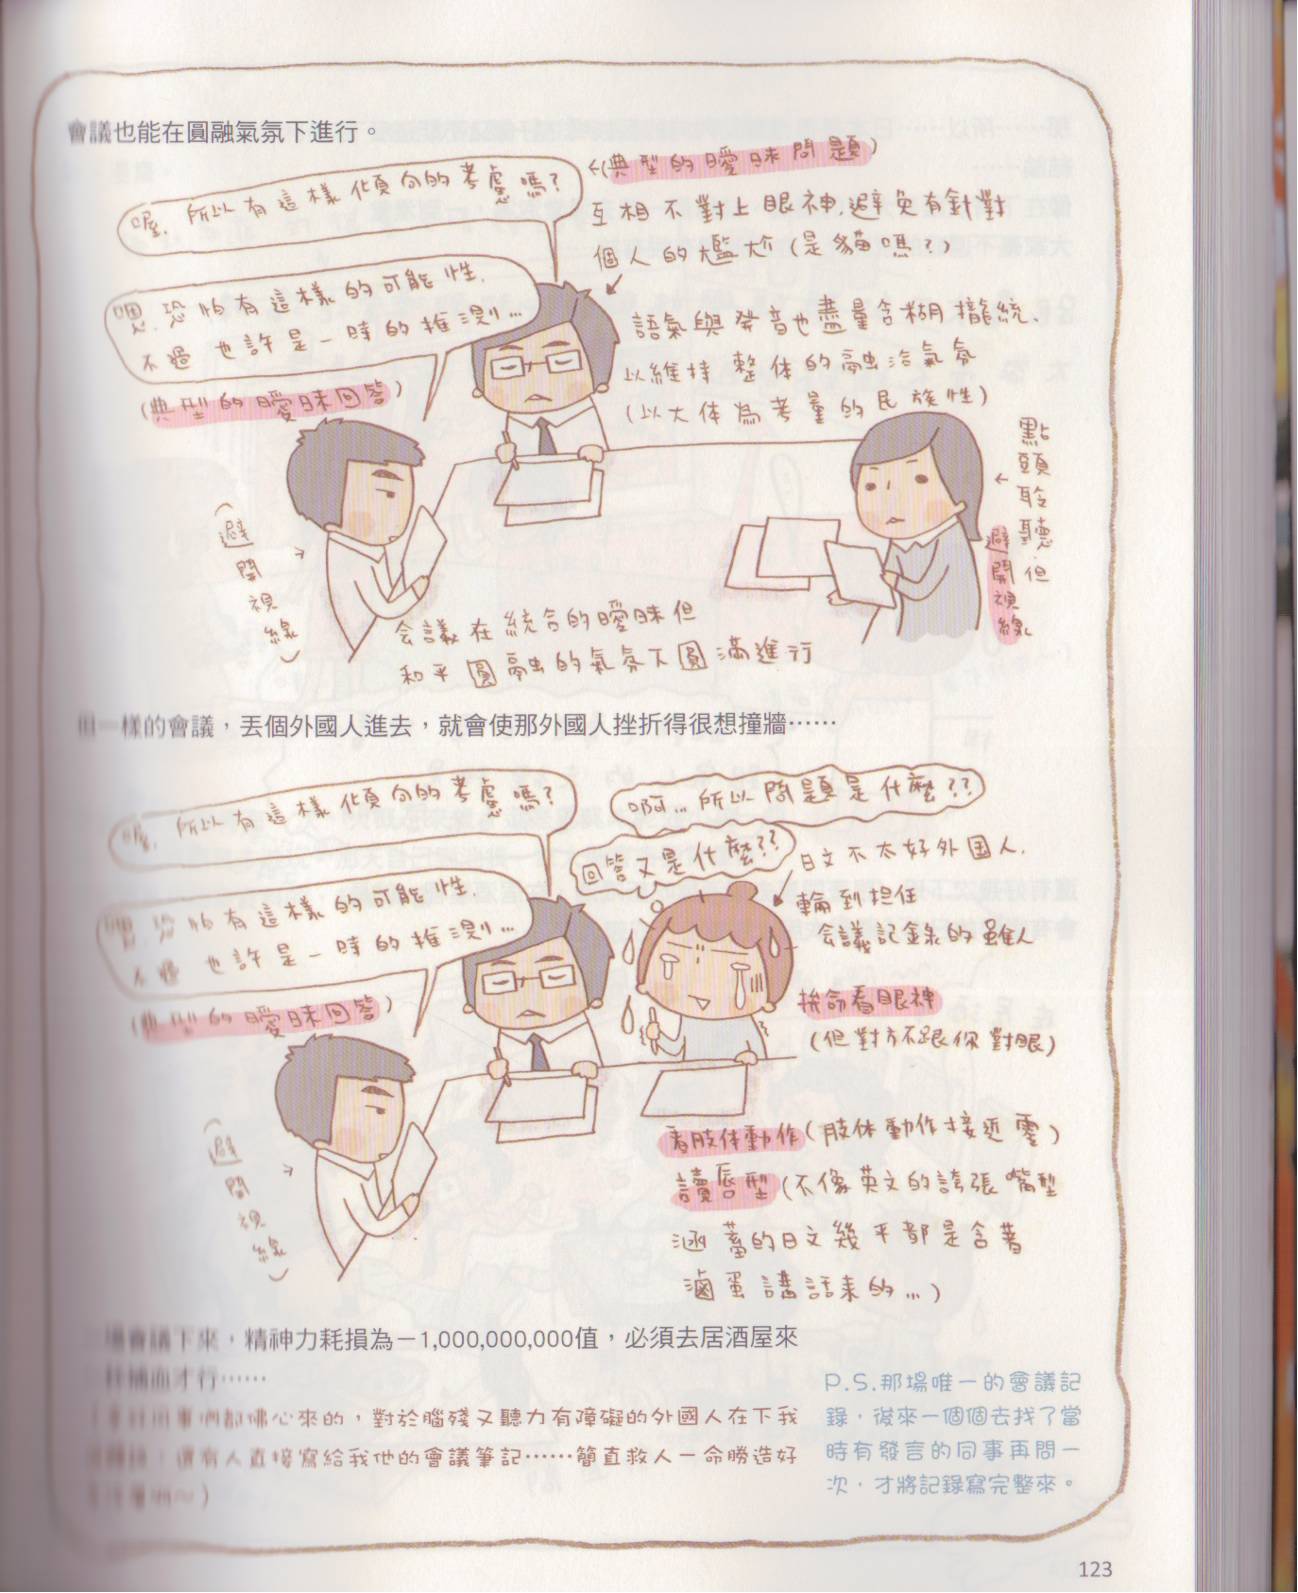 會議也能在圓融氣氛下進行。
喔,所以有這樣傾向的考慮嗎?
←(典型的曖昧問題)
互相不對上眼神,避免有針對
個人的尷尬(是貓嗎?)
嗯,恐怕有這樣的可能性,
不過 也許是一時的推測…
(典型的曖昧回答)
語氣與發音也盡量含糊攏統、
以維持整体的融洽氣氛
(以大体為考量的民族性)
點頭聆聽,但
避開視線
(避開視線)
会議在統合的曖昧但
和平圓融的氣氛下圓滿進行
但一樣的會議,丟個外國人進去,就會使那外國人挫折得很想撞牆……
喔,所以有這樣傾向的考慮嗎?
啊…所以問題是什麼??
回答又是什麼??
嗯,恐怕有這樣的可能性,
不過 也許是一時的推測…
(典型的曖昧回答)
日文不太好外国人,
輪到担任
会議記錄的雖人
拚命看眼神
(但對方不跟你對眼)
(避開視線)
看肢体動作(肢体動作接近零)
讀唇型(不像英文的誇張嘴型
涵蓄的日文幾乎都是含著
滷蛋講話来的…)
場會議下來,精神力耗損為－1,000,000,000值,必須去居酒屋來
補血才行……
同事們都佛心來的,對於腦殘又聽力有障礙的外國人在下我
還有人直接寫給我他的會議筆記……簡直救人一命勝造好
P.S.那場唯一的會議記
錄,後來一個個去找了當
時有發言的同事再問一
次,才將記錄寫完整來。
123